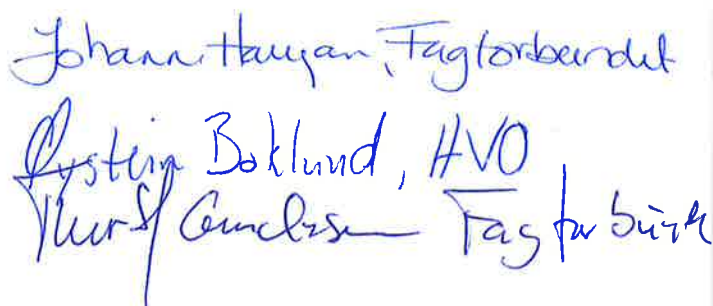 Johann Haugan, Fagforbundet
Øystein Boklund, HVO
Fagforbundet